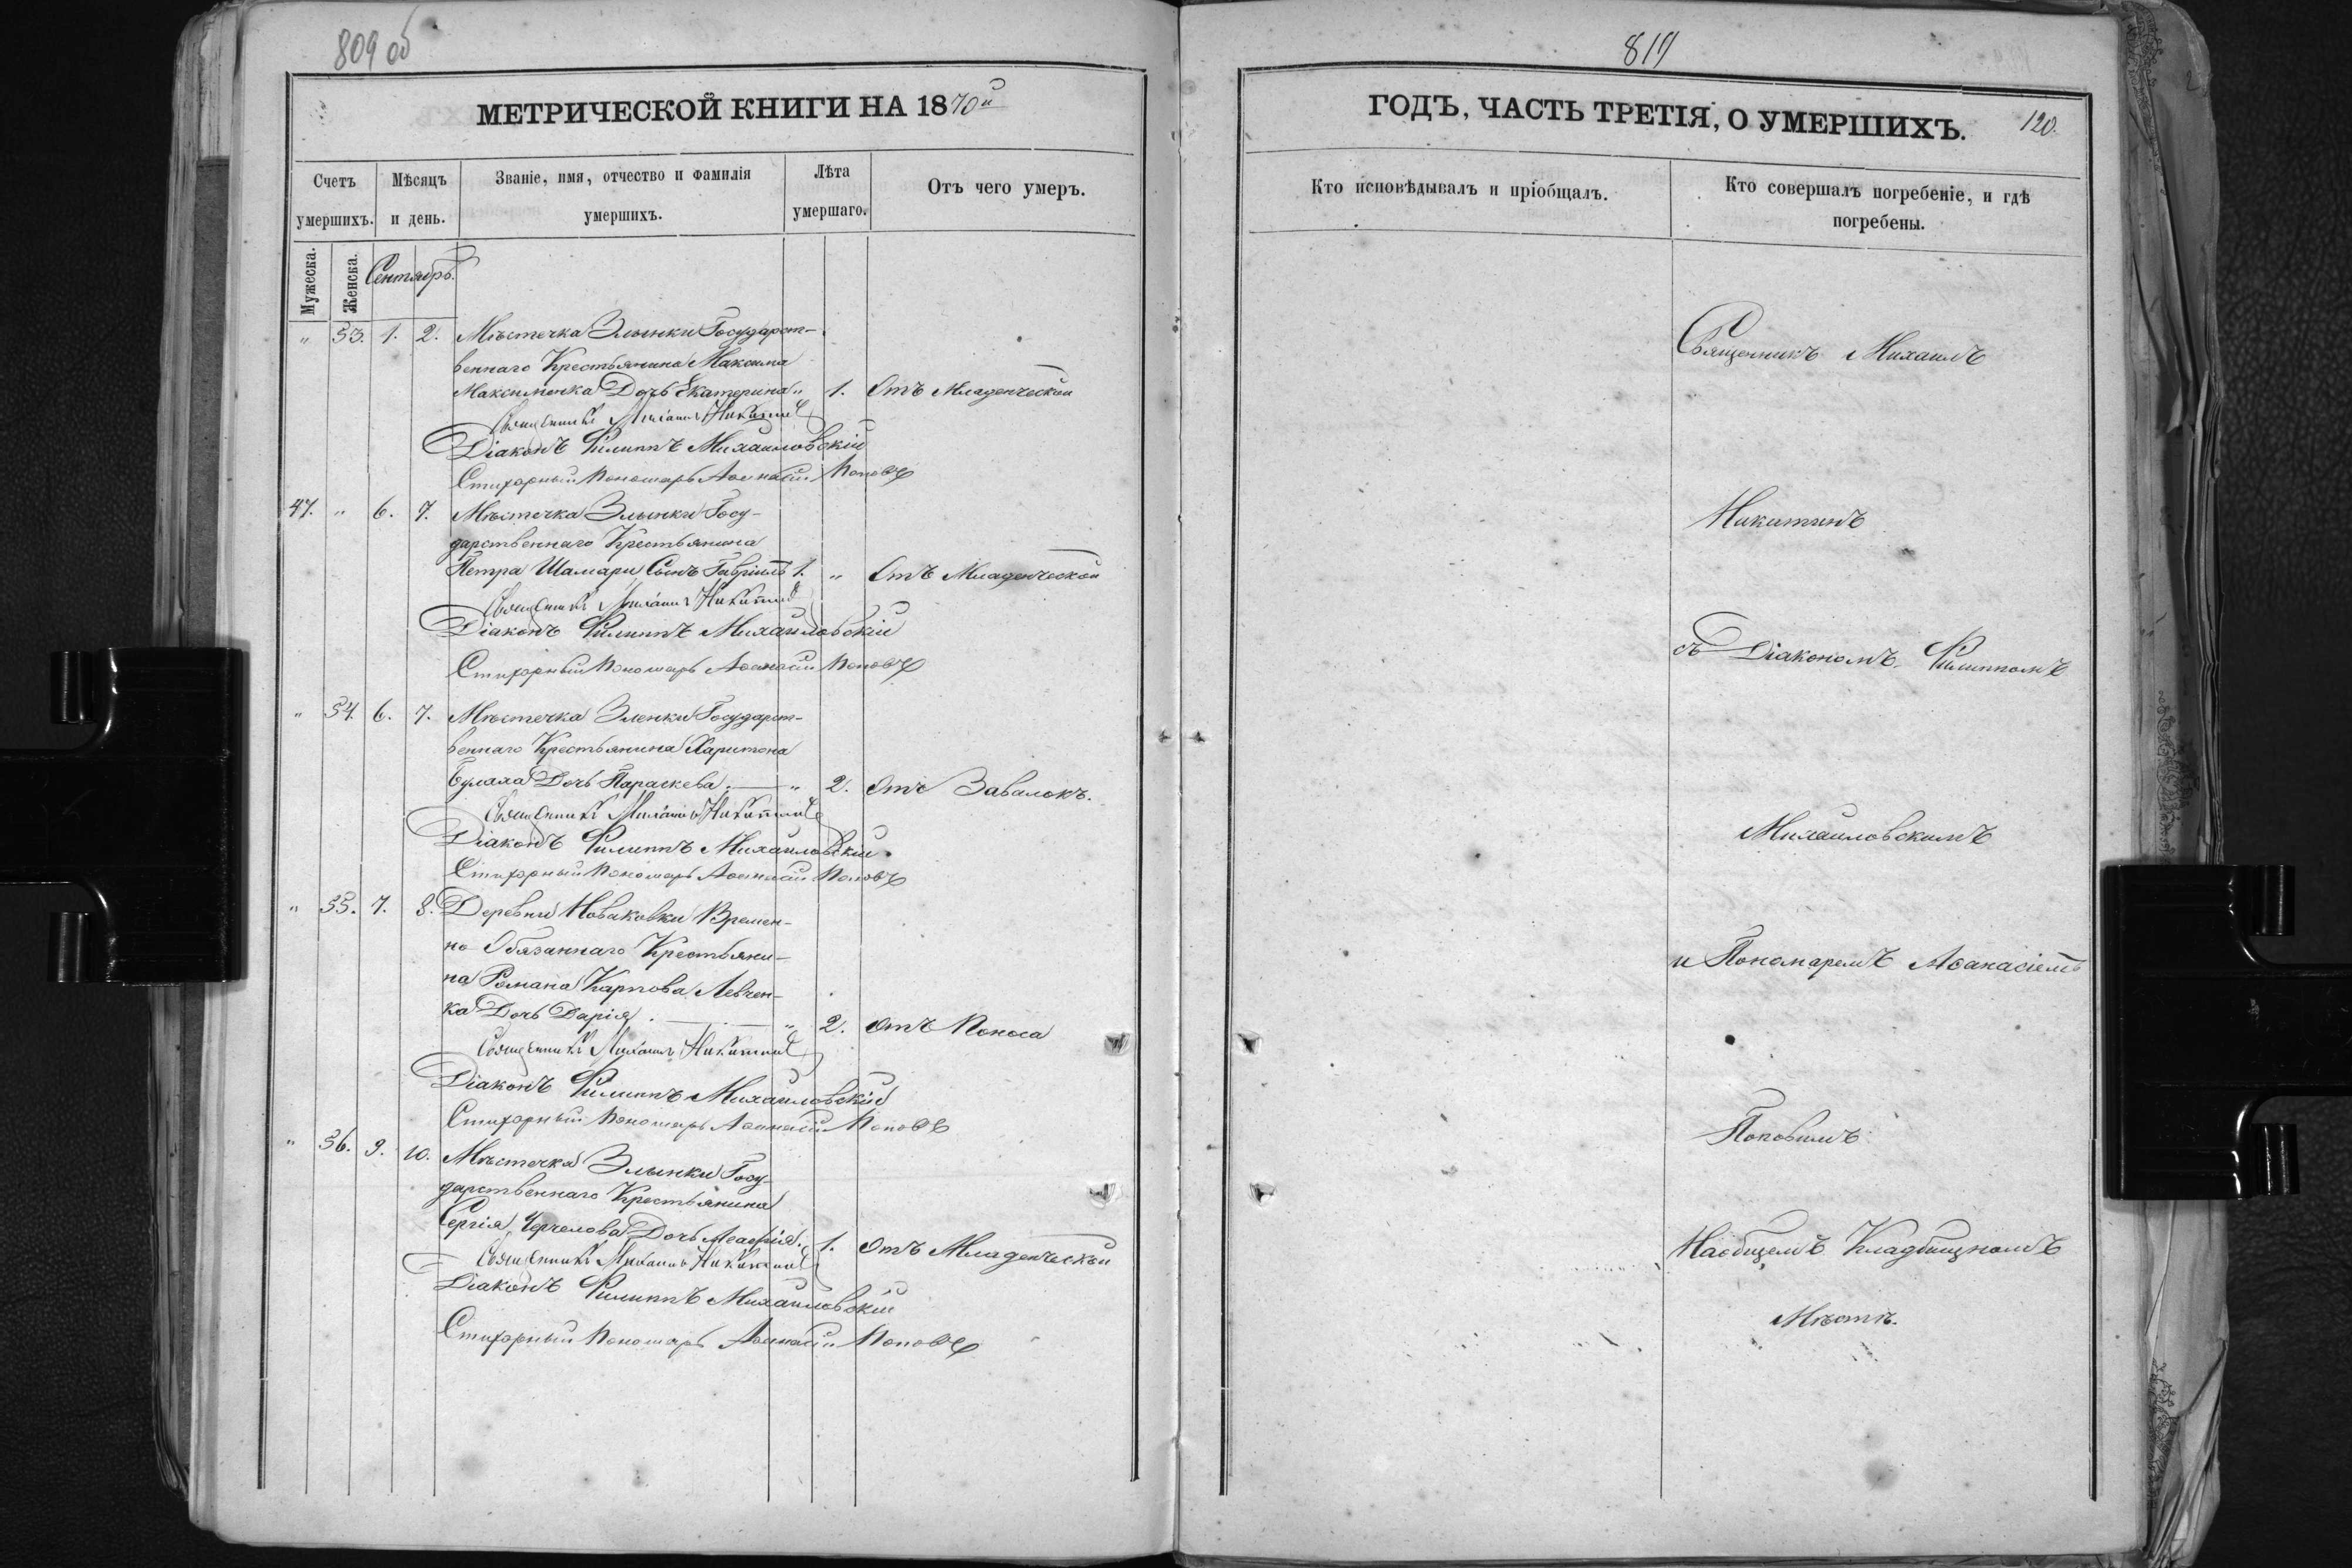 809 об
МЕТРИЧЕСКОЙ КНИГИ НА 1870й
Счетъ умершихъ.
Мѣсяцъ и день.
Званіе, имя, отчество и фамилія умершихъ.
Лѣта умершаго.
Отъ чего умеръ.
Мужеска.
Женска.
Сентябрь.
" 53. 1. 2. Мѣстечка Злынки Государст-
веннаго Крестьянина Максима
Максименка Дочь Екатерина " 1. Отъ Младенческой
Священникъ Михаилъ Никитинъ
Діаконъ Филиппъ Михайловскій
Стихарный Пономарь Аѳанасій Поповъ
47. " 6. 7. Мѣстечка Злынки Госу-
дарственнаго Крестьянина
Петра Шамари Сынъ Гавріилъ 1. " Отъ Младенческой
Священникъ Михаилъ Никитинъ
Діаконъ Филиппъ Михайловскій
Стихарный Пономарь Аѳанасій Поповъ
" 54. 6. 7. Мѣстечка Зленки Государст-
веннаго Крестьянина Харитона
Булаха Дочь Параскева. " 2. Отъ Завалокъ.
Священникъ Михаилъ Никитинъ
Діаконъ Филиппъ Михайловскій
Стихарный Пономарь Аѳанасій Поповъ
" 55. 7. 8. Деревни Новаковки Времен-
но Обязаннаго Крестьяни-
на Романа Карпова Левчен-
ка Дочь Дарія. " 2. Отъ Поноса
Священникъ Михаилъ Никитинъ
Діаконъ Филиппъ Михайловскій
Стихарный Пономарь Аѳанасій Поповъ
" 56. 9. 10. Мѣстечка Злынки Госу-
дарственнаго Крестьянина
Сергія Дочь 1. Отъ Младенческой
Священникъ Михаилъ Никитинъ
Діаконъ Филиппъ Михайловскій
Стихарный Пономарь Аѳанасій Поповъ
ГОДЪ, ЧАСТЬ ТРЕТІЯ, О УМЕРШИХЪ.
120.
Кто исповѣдывалъ и пріобщалъ.
Кто совершалъ погребеніе, и гдѣ
погребены.
Священникъ Михаилъ
Никитинъ
съ Діакономъ Филиппомъ
Михайловскимъ
и Пономаремъ Аѳанасіемъ
Поповымъ
На общемъ Кладбищномъ
Мѣстѣ.